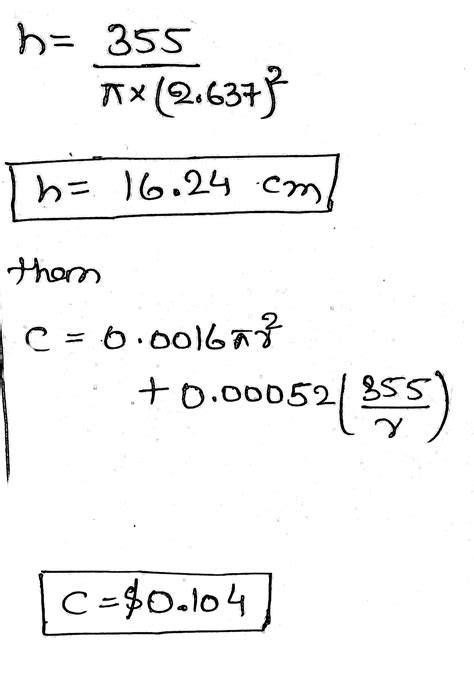 h = 355 / π × (2.637)²
h = 16.24 cm
then
C = 0.0016πr²
+ 0.00052 (355 / r)
C = $0.104